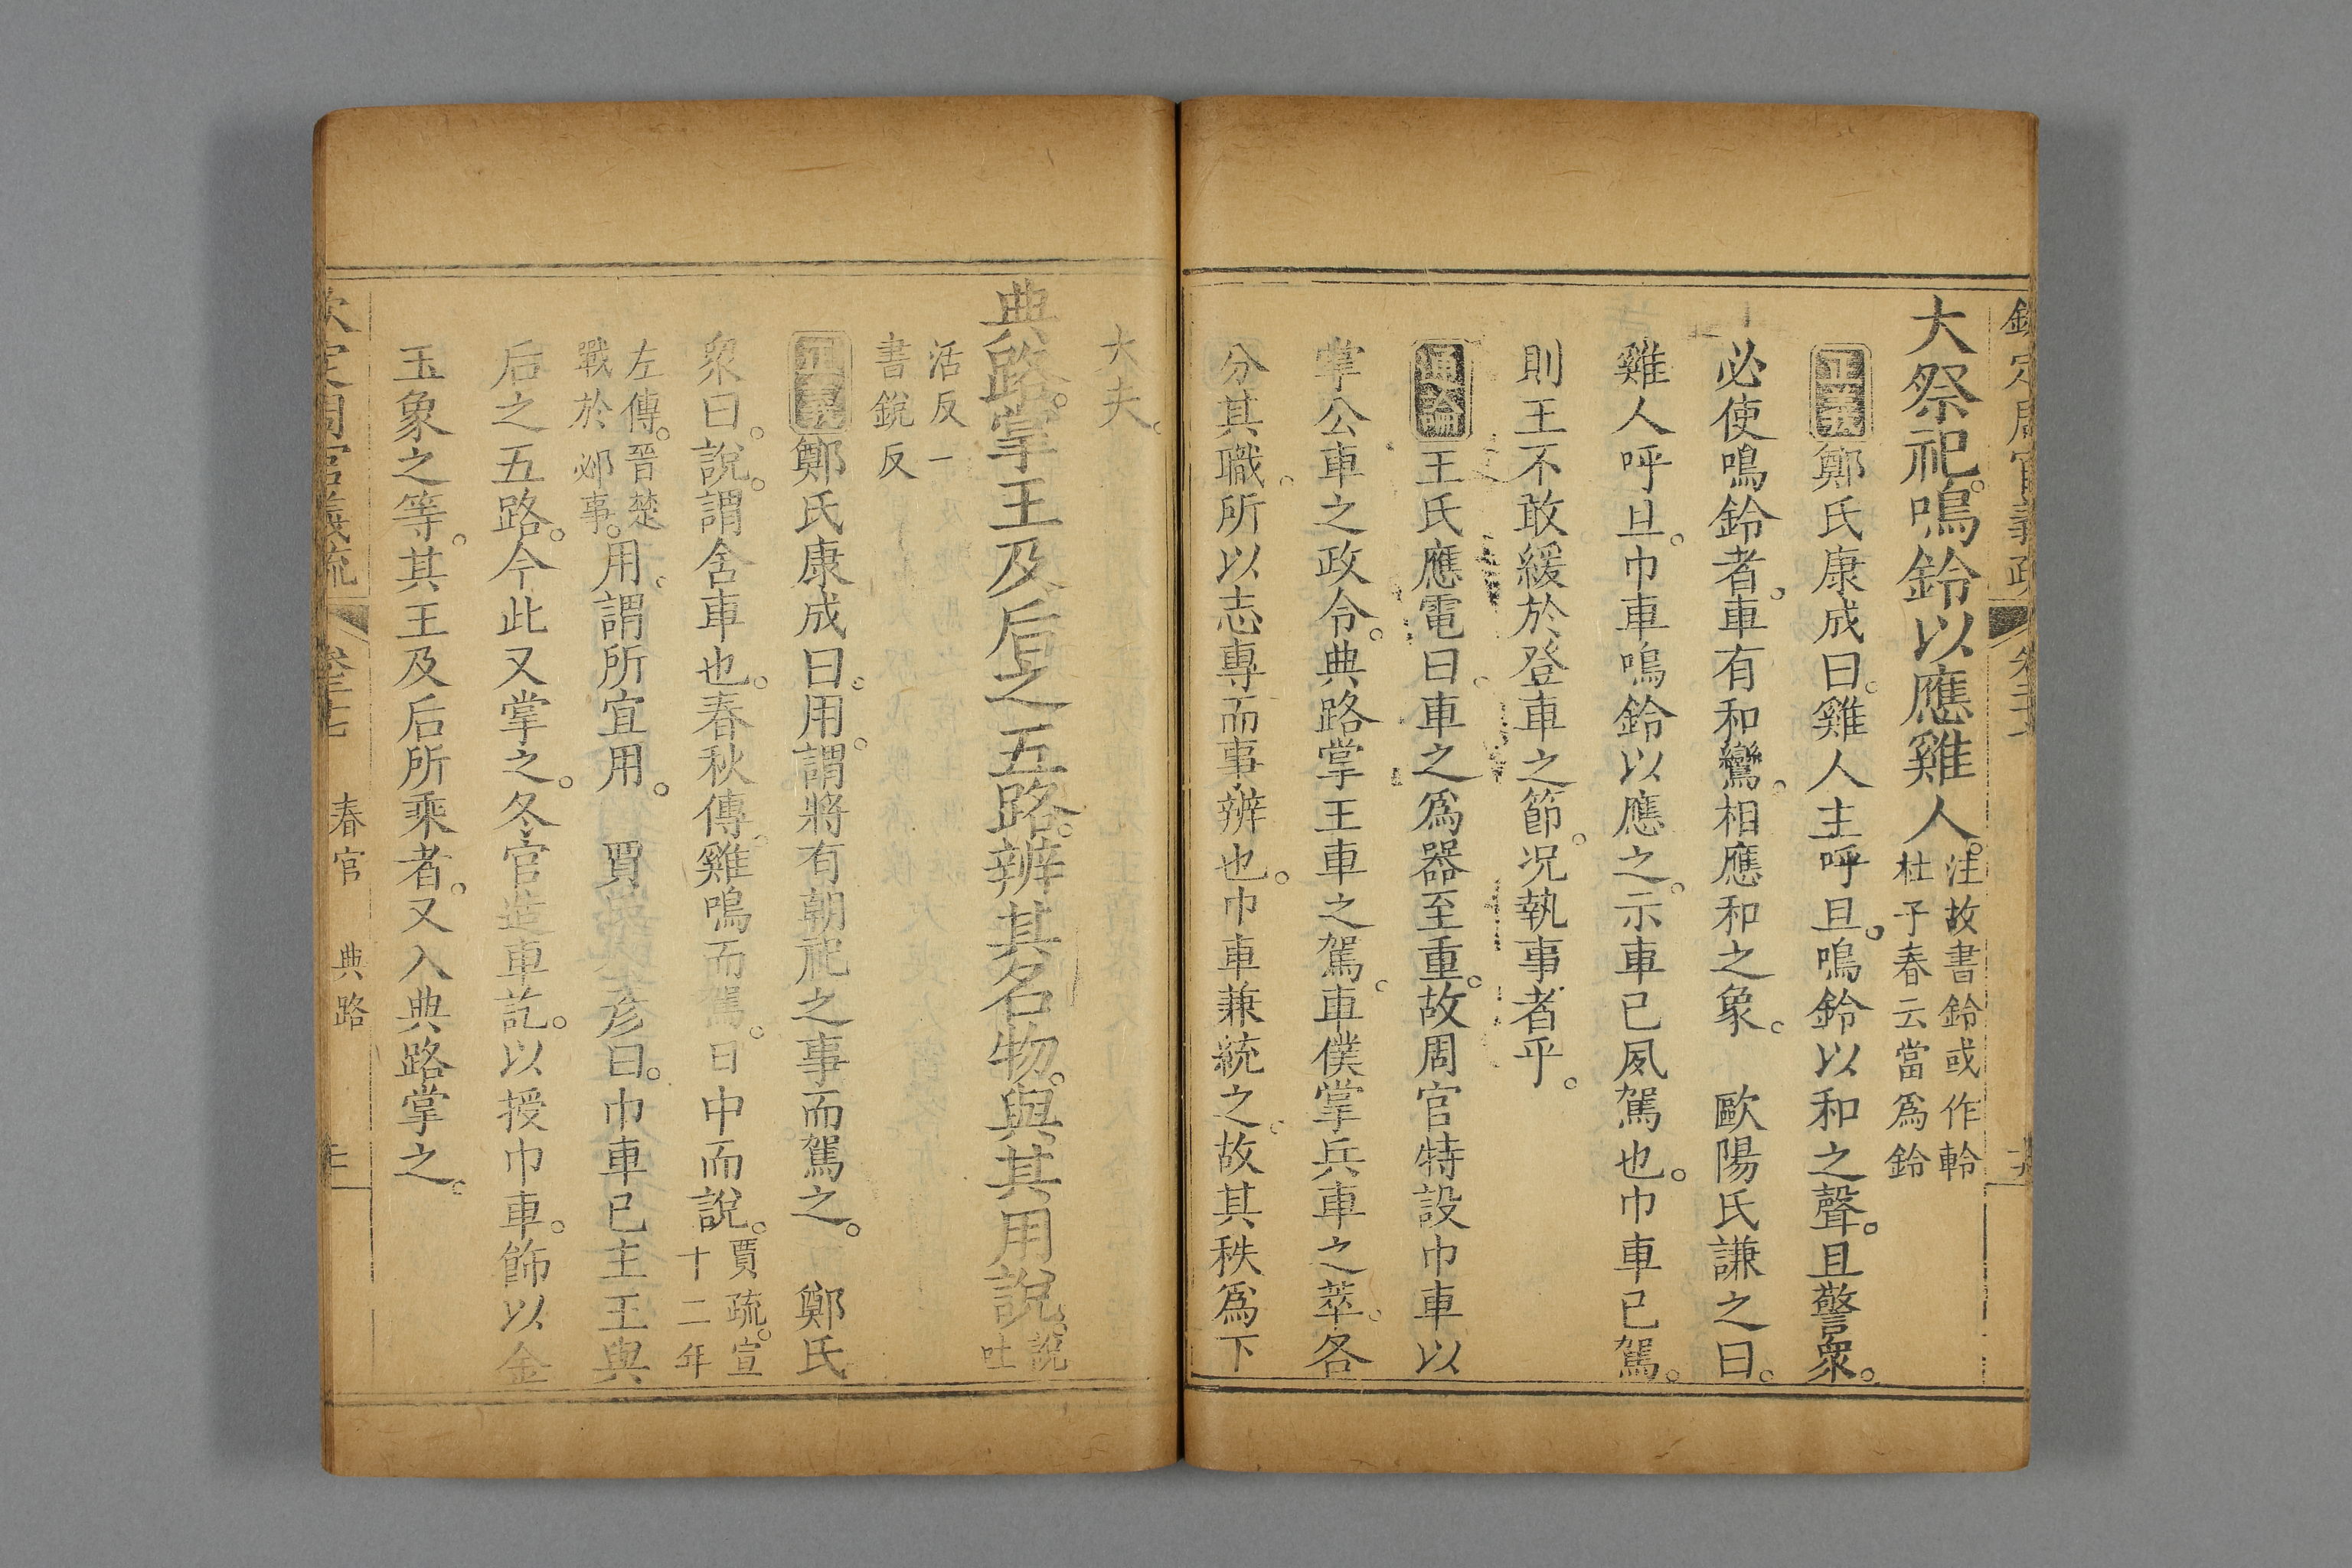 欽定周官義疏 卷二十七
大祭祀。鳴鈴以應雞人。注故書鈴或作軨
杜子春云當爲鈴
正義鄭氏康成曰。雞人主呼旦。鳴鈴以和之聲。且警衆。
必使鳴鈴者。車有和鸞。相應和之象。 歐陽氏謙之曰。
雞人呼旦。巾車鳴鈴以應之。示車已夙駕也。巾車已駕。
則王不敢緩於登車之節。况執事者乎。
通論王氏應電曰。車之爲器至重。故周官特設巾車以
掌公車之政令。典路掌王車之駕。車僕掌兵車之萃。各
分其職。所以志專而事辨也。巾車兼統之。故其秩爲下
大夫。
典路。掌王及后之五路。辨其名物。與其用說。說吐
活反一
書銳反
正義鄭氏康成曰。用。謂將有朝祀之事而駕之。 鄭氏
衆曰。說。謂舍車也。春秋傳。雞鳴而駕。日中而說。賈疏。宣十二年
左傳。晉楚
戰於邲事。用。謂所宜用。 賈氏公彦曰。巾車已主王與
后之五路。今此又掌之。冬官造車訖。以授巾車。飾以金
玉象之等。其王及后所乘者。又入典路掌之。
欽定周官義疏 卷二十七 春官 典路